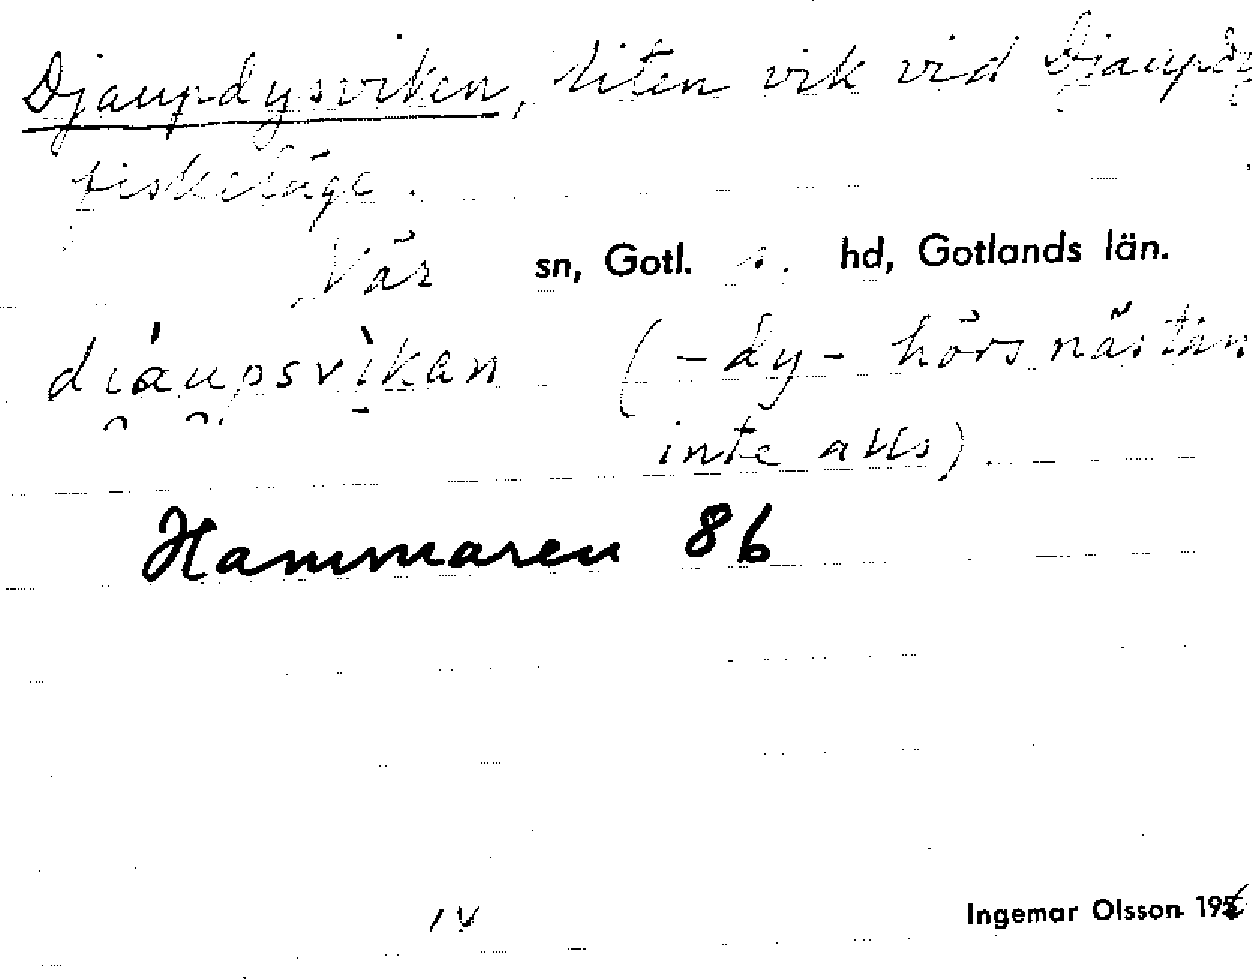 Djaupdysviken, liten vik vid Djaupdy
fiskeläge.
När sn, Gotl. s. hd, Gotlands län.
diáupsvìkan (-dy- hörs nästan
inte alls).
Hammaren 86
Ingemar Olsson 195